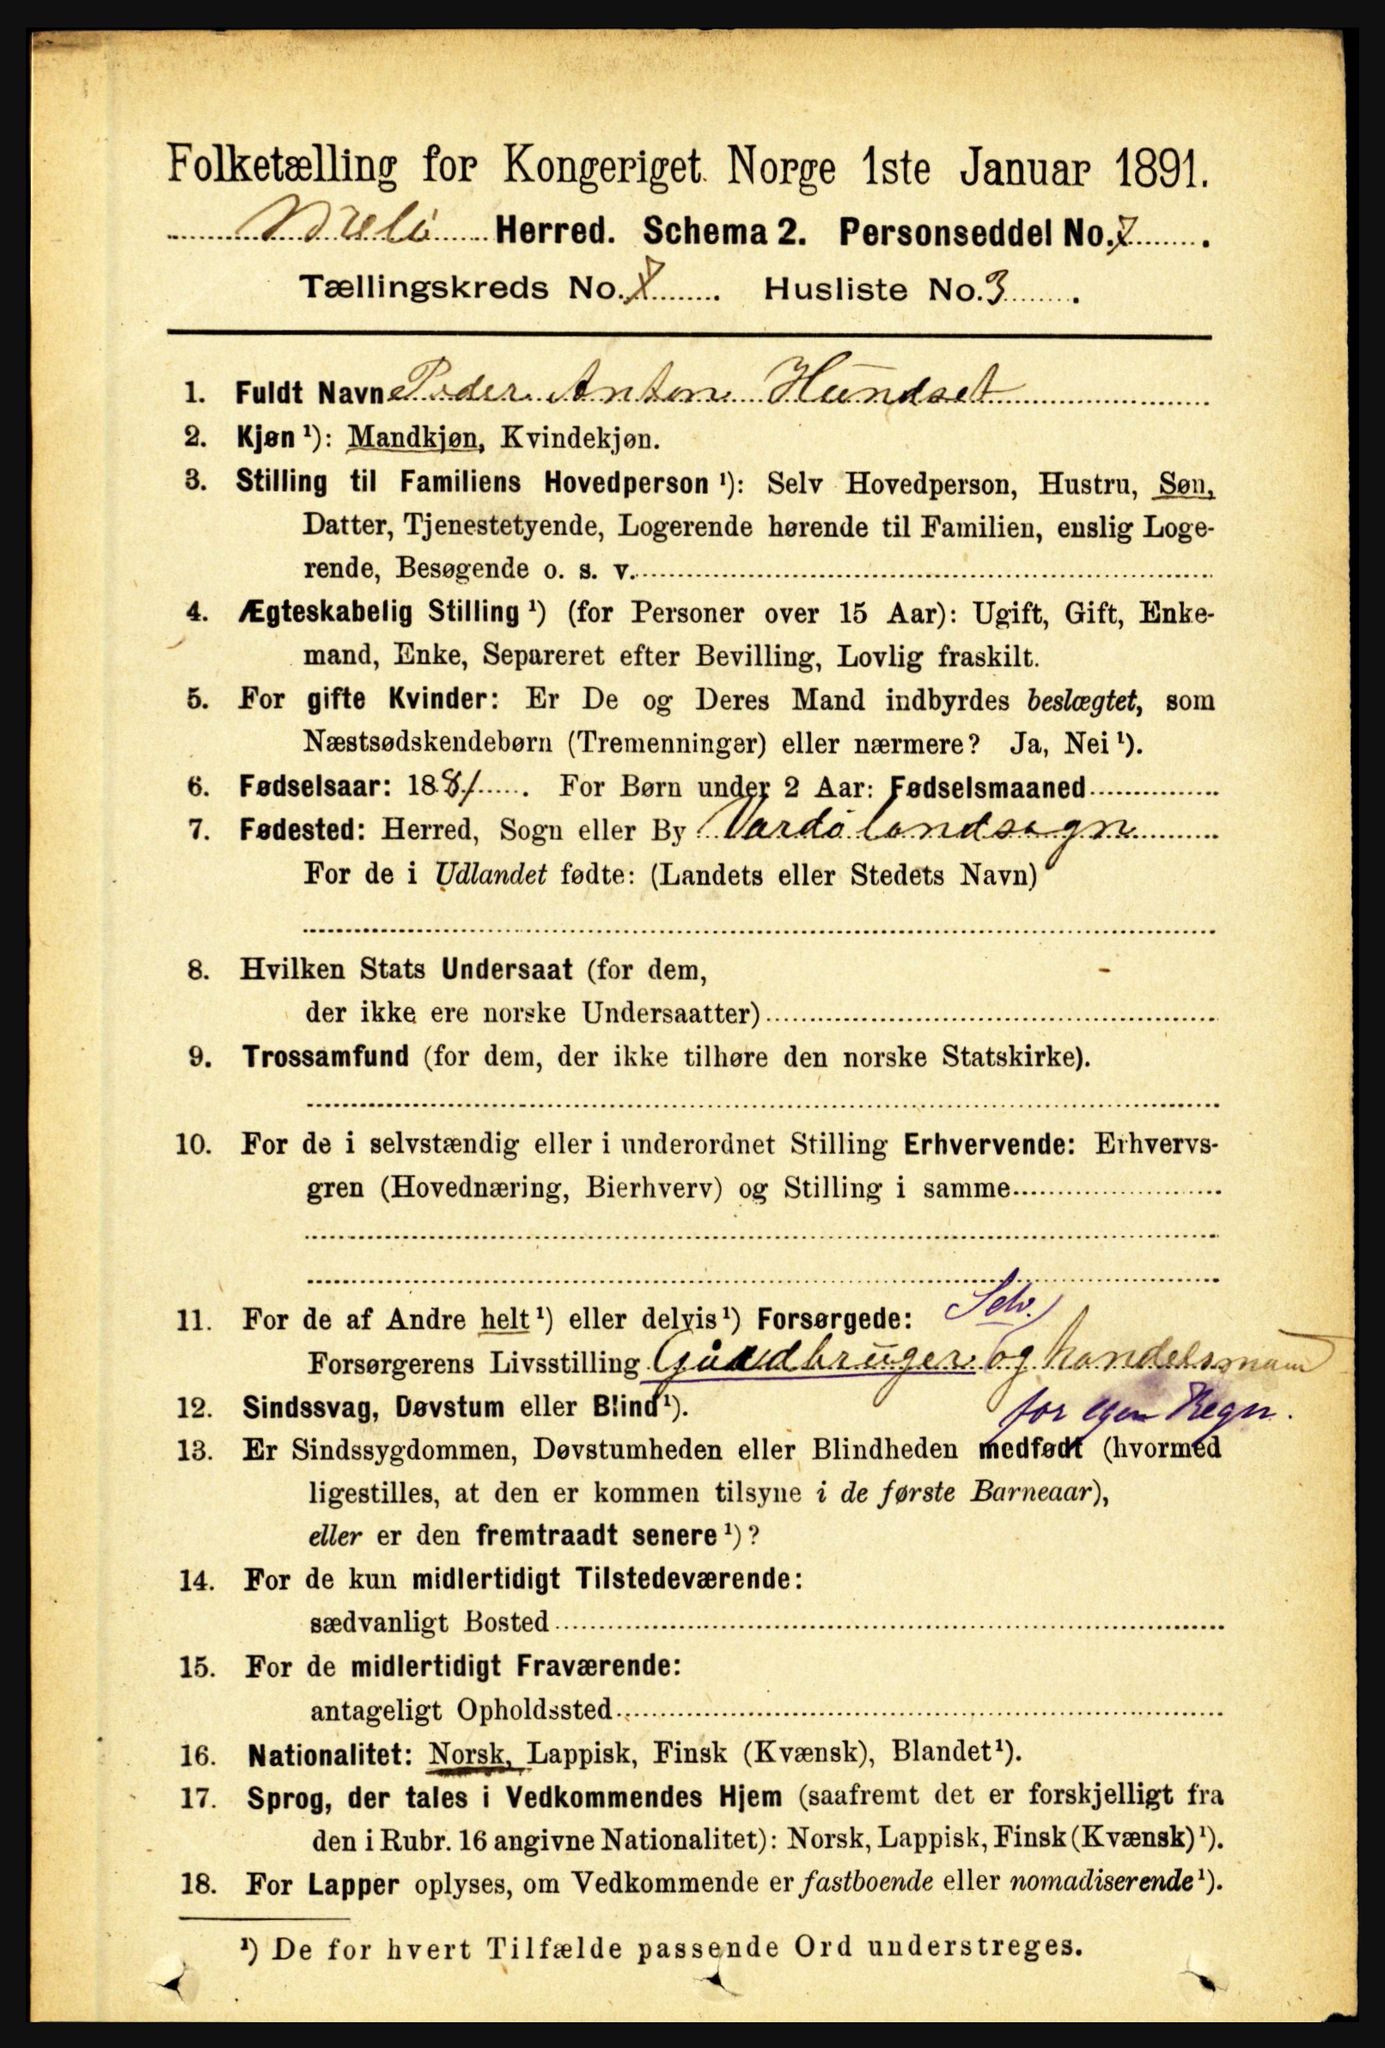 Folketælling for Kongeriget Norge 1ste Januar 1891.
Brelø Herred. Schema 2. Personseddel No. 7.
Tællingskreds No. 8. Husliste No. 3.
1. Fuldt Navn Peder Anton Hundset
2. Kjøn ¹): Mandkjøn, Kvindekjøn.
3. Stilling til Familiens Hovedperson ¹): Selv Hovedperson, Hustru, Søn,
Datter, Tjenestetyende, Logerende hørende til Familien, enslig Loge-
rende, Besøgende o. s. v.
4. Ægteskabelig Stilling ¹) (for Personer over 15 Aar): Ugift, Gift, Enke-
mand, Enke, Separeret efter Bevilling, Lovlig fraskilt.
5. For gifte Kvinder: Er De og Deres Mand indbyrdes beslægtet, som
Næstsødskendebørn (Tremenninger) eller nærmere? Ja, Nei ¹).
6. Fødselsaar: 1881. For Børn under 2 Aar: Fødselsmaaned
7. Fødested: Herred, Sogn eller By Vardø landsogn
For de i Udlandet fødte: (Landets eller Stedets Navn)
8. Hvilken Stats Undersaat (for dem,
der ikke ere norske Undersaatter)
9. Trossamfund (for dem, der ikke tilhøre den norske Statskirke).
10. For de i selvstændig eller i underordnet Stilling Erhvervende: Erhvervs-
gren (Hovednæring, Bierhverv) og Stilling i samme
11. For de af Andre helt ¹) eller delvis ¹) Forsørgede: Selv.
Forsørgerens Livsstilling Gårdbruger og handelsmann
12. Sindssvag, Døvstum eller Blind ¹). for egen Regn.
13. Er Sindssygdommen, Døvstumheden eller Blindheden medfødt (hvormed
ligestilles, at den er kommen tilsyne i de første Barneaar),
eller er den fremtraadt senere ¹)?
14. For de kun midlertidigt Tilstedeværende:
sædvanligt Bosted
15. For de midlertidigt Fraværende:
antageligt Opholdssted
16. Nationalitet: Norsk, Lappisk, Finsk (Kvænsk), Blandet ¹).
17. Sprog, der tales i Vedkommendes Hjem (saafremt det er forskjelligt fra
den i Rubr. 16 angivne Nationalitet): Norsk, Lappisk, Finsk (Kvænsk) ¹).
18. For Lapper oplyses, om Vedkommende er fastboende eller nomadiserende ¹).
¹) De for hvert Tilfælde passende Ord understreges.